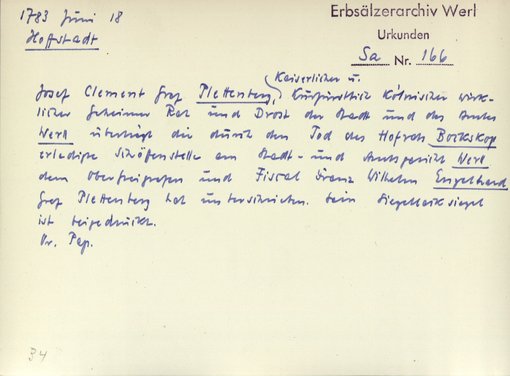 1783 Juni 18
Hoffstadt
Erbsälzerarchiv Werl
Urkunden
Sa Nr. 166
Kaiserlicher u.
Josef Clement Graf Plettenberg, Kurfürstlich Kölnischer wirk-
licher Geheimer Rat und Drost der Stadt und des Amtes
Werl überträgt die durch den Tod des Hofrats Bockskop
erledigte Schöffenstelle am Stadt- und Amtsgericht Werl
dem Oberfreigrafen und Fiscal Franz Wilhelm Engelhard
Graf Plettenberg hat unterschrieben. Sein Siegellacksiegel
ist beigedrückt.
Or. Pap.
34